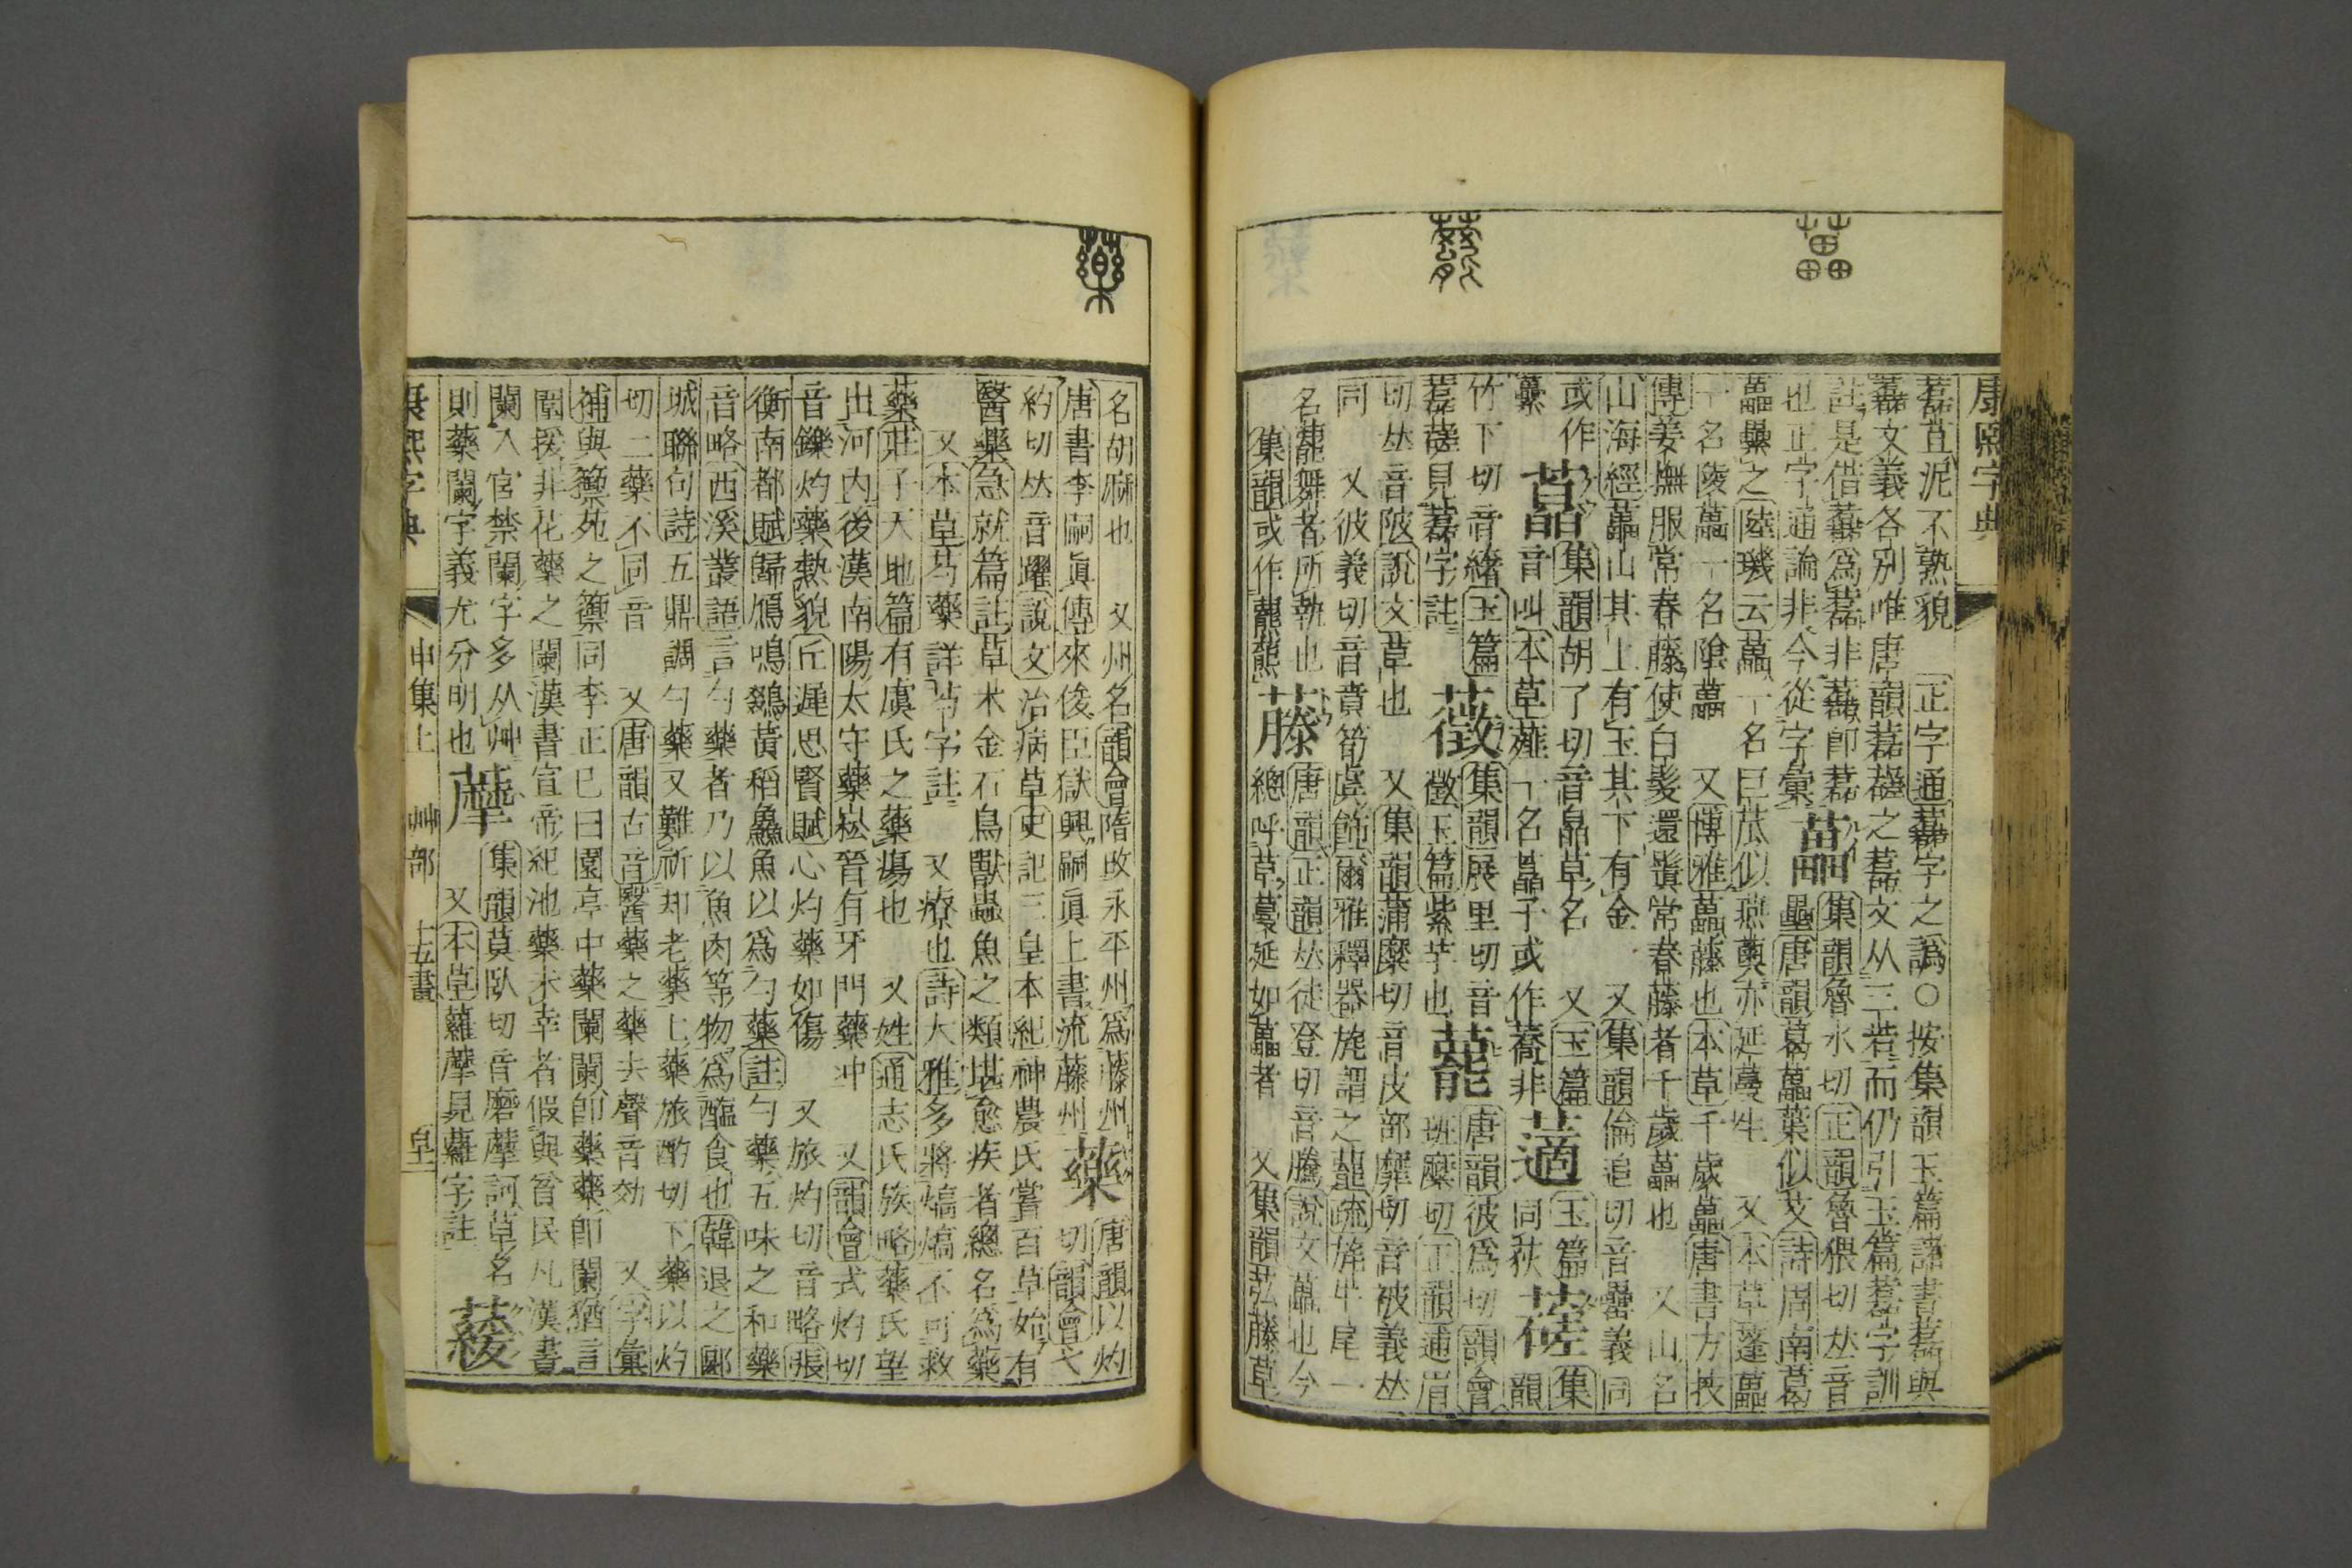 康熙字典
藞苴泥不熟貌 正字通䕢字之譌○按集韻玉篇諸書藞與
文義各別唯唐韻藞之藞文从三若而仍引玉篇字訓
註是借爲藞非卽藞 藟 集韻魯水切正韻魯猥切𠀤音
也正字通論非今從字彙 壘唐韻葛藟葉似艾詩周南葛
藟纍之陸璣云藟一名巨苽似燕薁亦延蔓生 又本草蓬藟
一名陵藟一名陰藟 又博雅藟藤也本草千歲藟唐書方技
傳姜撫服常春藤使白髮還鬒常春藤者千歲藟也 又山名
山海經藟山其上有玉其下有金 又集韻倫追切音纍義同
或作 藠 集韻胡了切音皛草名 又玉篇 藡 玉篇 集
蘽 音叫本草薤一名藠子或作藠非 同荻 韻
竹下切音緒玉篇 集韻展里切音 藣 唐韻彼爲切韻會
藞見藞字註 徵玉篇芋也 班糜切正韻逋眉
切𠀤音陂說文草也 又集韻蒲糜切音皮部靡切音被義𠀤
同 又彼義切音賁筍虡飾爾雅釋器旄謂之藣疏旄牛尾一
名藣舞者所執也 藤 唐韻正韻𠀤徒登切音騰說文藟也今
集韻或作 總呼草蔓延如藟者 又集韻苰藤草
名胡麻也 又州名韻會隋改永平州爲藤州 藥 唐韻以灼
唐書李嗣眞傳來俊臣獄興嗣眞上書流藤州 切韻會弋
約切𠀤音躍說文治病草史記三皇本紀神農氏嘗百草始有
醫藥急就篇註草木金石鳥獸蟲魚之類堪愈疾者總名爲藥
又本草芍藥詳芍字註 又療也詩大雅多將熇熇不可救
藥莊子天地篇有虞氏之藥瘍也 又姓通志氏族略藥氏望
出河內後漢南陽太守藥崧晉有牙門藥冲 又韻會式灼切
音鑠灼藥熱貌丘遲思賢賦心灼藥如傷 又旅灼切音略張
衡南都賦歸鴈鳴鵽黃稻鱻魚以爲勺藥註勺藥五味之和藥
音略西溪叢語言勺藥者乃以魚肉等物爲醢食也韓退之郾
城聯句詩五鼎調勺藥又難祈却老藥上藥旅酌切下藥以灼
切二藥不同音 又唐韻古音醫藥之藥去聲音効 又字彙
補與籞苑之籞同李正已曰園亭中藥闌闌卽藥藥卽闌猶言
圍援非花藥之闌漢書宣帝紀池藥未幸者假與貧民凡漢書
闌入宮禁闌字多从艸 藦 集韻莫臥切音磨藦訶草名 䔖
則藥闌字義尤分明也 又本草蘿藦見蘿字註
康熙字典 申集上 艸部 十五畫